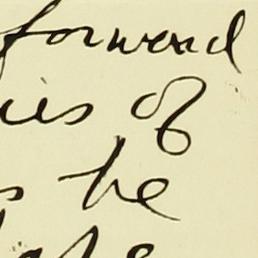 forward
ies of
s he